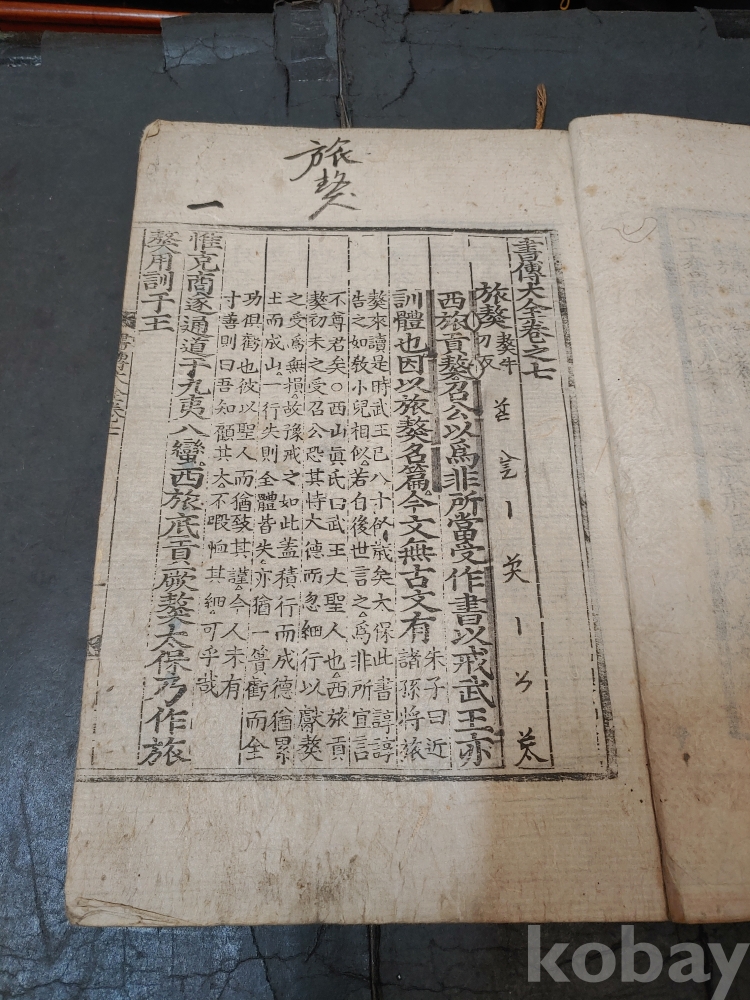 旅獒
一
書傳大全卷之七
旅獒 獒牛
刀反
西旅貢獒召公以爲非所當受作書以戒武王亦
訓體也因以旅獒名篇今文無古文有 朱子曰近
諸孫將旅
獒來讀是時武王已八十餘歲矣太保此書諄諄
告之如敎小兒相似若自後世言之爲非所宜言
不尊君矣○西山眞氏曰武王大聖人也西旅貢
獒初未之受召公恐其恃大德而忽細行以獻獒
之受爲無損故豫戒之如此蓋積行而成德猶累
土而成山一行失則全體皆失亦猶一簣虧而全
功俱虧也彼以聖人而猶致其謹今人未有
寸善則曰吾知顧其大不暇恤其細可乎哉
惟克商遂通道于九夷八蠻西旅底貢厥獒太保乃作旅
獒用訓于王
書傳大全卷七
kobay